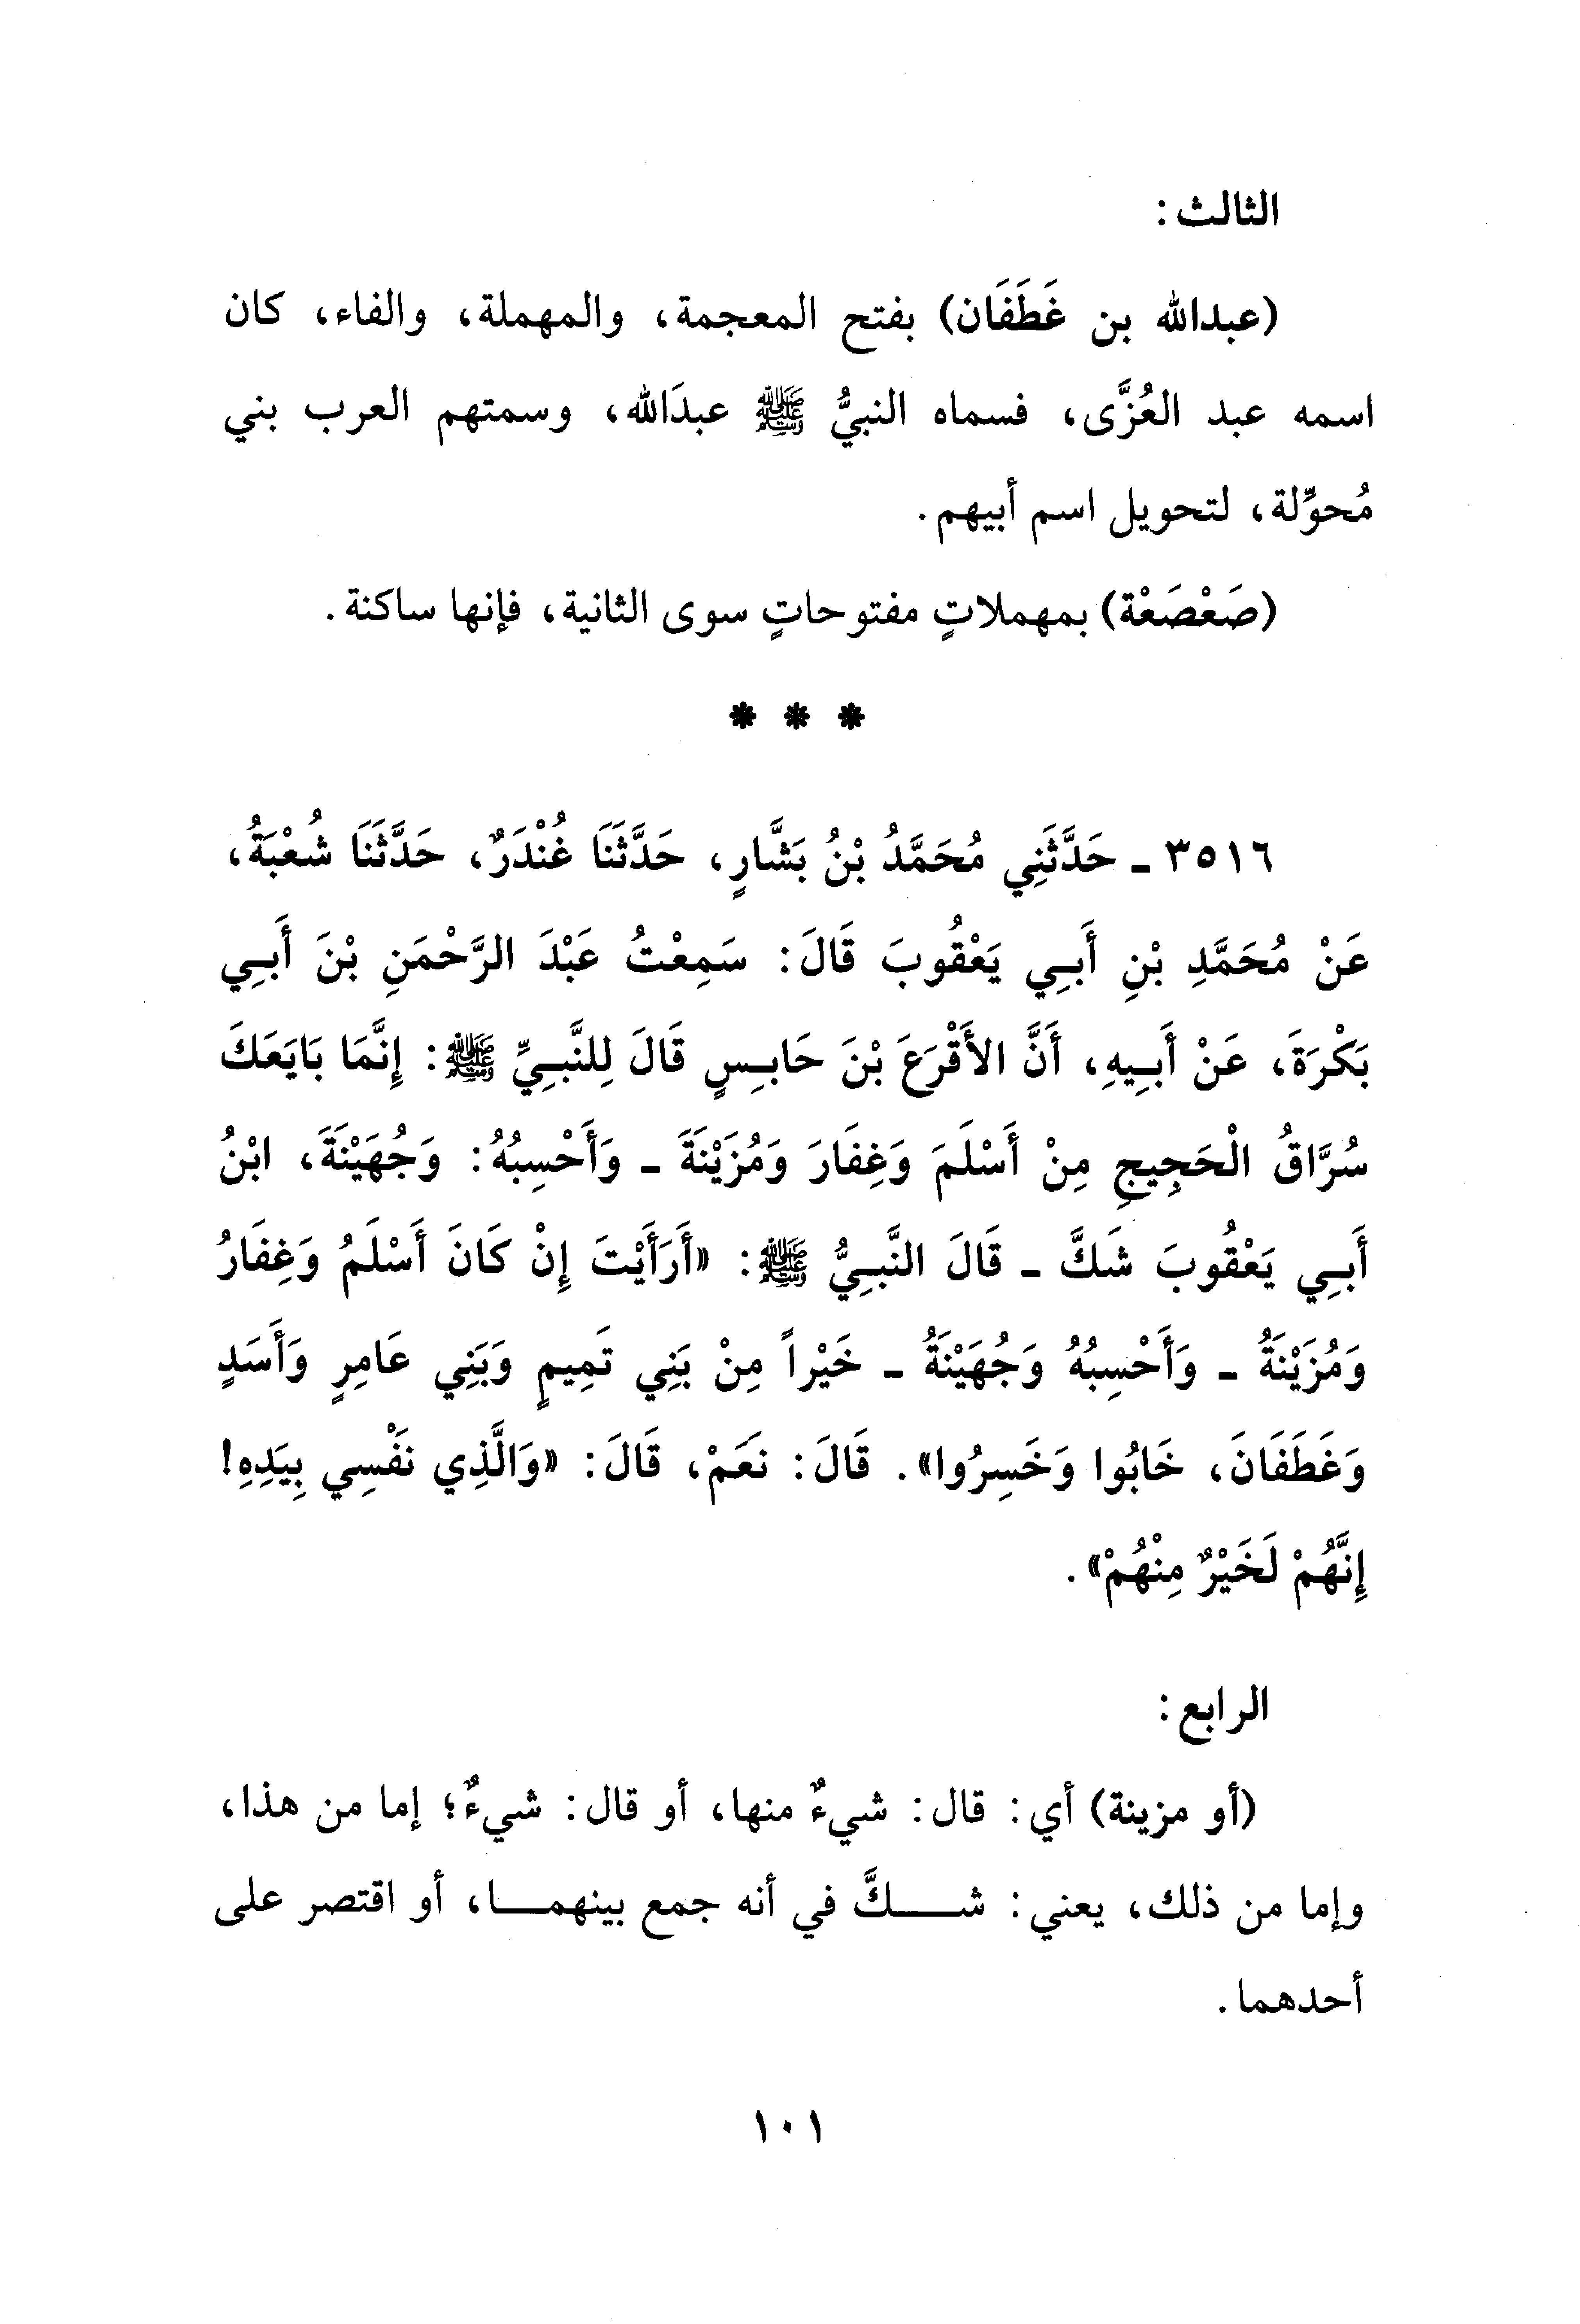 الثالث:
(عبدالله بن غَطَفَان) بفتح المعجمة، والمهملة، والفاء، كان
اسمه عبد العُزَّى، فسماه النبيُّ ﷺ عبدَالله، وسمتهم العرب بني
مُحوِّلة، لتحويل اسم أبيهم.
(صَعْصَعْة) بمهملاتٍ مفتوحاتٍ سوى الثانية، فإنها ساكنة.
* * *
٣٥١٦ ـ حَدَّثَنِي مُحَمَّدُ بْنُ بَشَّارٍ، حَدَّثَنَا غُنْدَرٌ، حَدَّثَنَا شُعْبَةُ،
عَنْ مُحَمَّدِ بْنِ أَبِي يَعْقُوبَ قَالَ: سَمِعْتُ عَبْدَ الرَّحْمَنِ بْنَ أَبِي
بَكْرَةَ، عَنْ أَبِيهِ، أَنَّ الأَقْرَعَ بْنَ حَابِسٍ قَالَ لِلنَّبِيِّ ﷺ: إِنَّمَا بَايَعَكَ
سُرَّاقُ الْحَجِيجِ مِنْ أَسْلَمَ وَغِفَارَ وَمُزَيْنَةَ ـ وَأَحْسِبُهُ: وَجُهَيْنَةَ، ابْنُ
أَبِي يَعْقُوبَ شَكَّ ـ قَالَ النَّبِيُّ ﷺ: «أَرَأَيْتَ إِنْ كَانَ أَسْلَمُ وَغِفَارُ
وَمُزَيْنَةُ ـ وَأَحْسِبُهُ وَجُهَيْنَةُ ـ خَيْراً مِنْ بَنِي تَمِيمٍ وَبَنِي عَامِرٍ وَأَسَدٍ
وَغَطَفَانَ، خَابُوا وَخَسِرُوا». قَالَ: نَعَمْ، قَالَ: «وَالَّذِي نَفْسِي بِيَدِهِ!
إِنَّهُمْ لَخَيْرٌ مِنْهُمْ».
الرابع:
(أو مزينة) أي: قال: شيءٌ منها، أو قال: شيءٌ؛ إما من هذا،
وإما من ذلك، يعني: شـــكَّ في أنه جمع بينهمـــا، أو اقتصر على
أحدهما.
١٠١